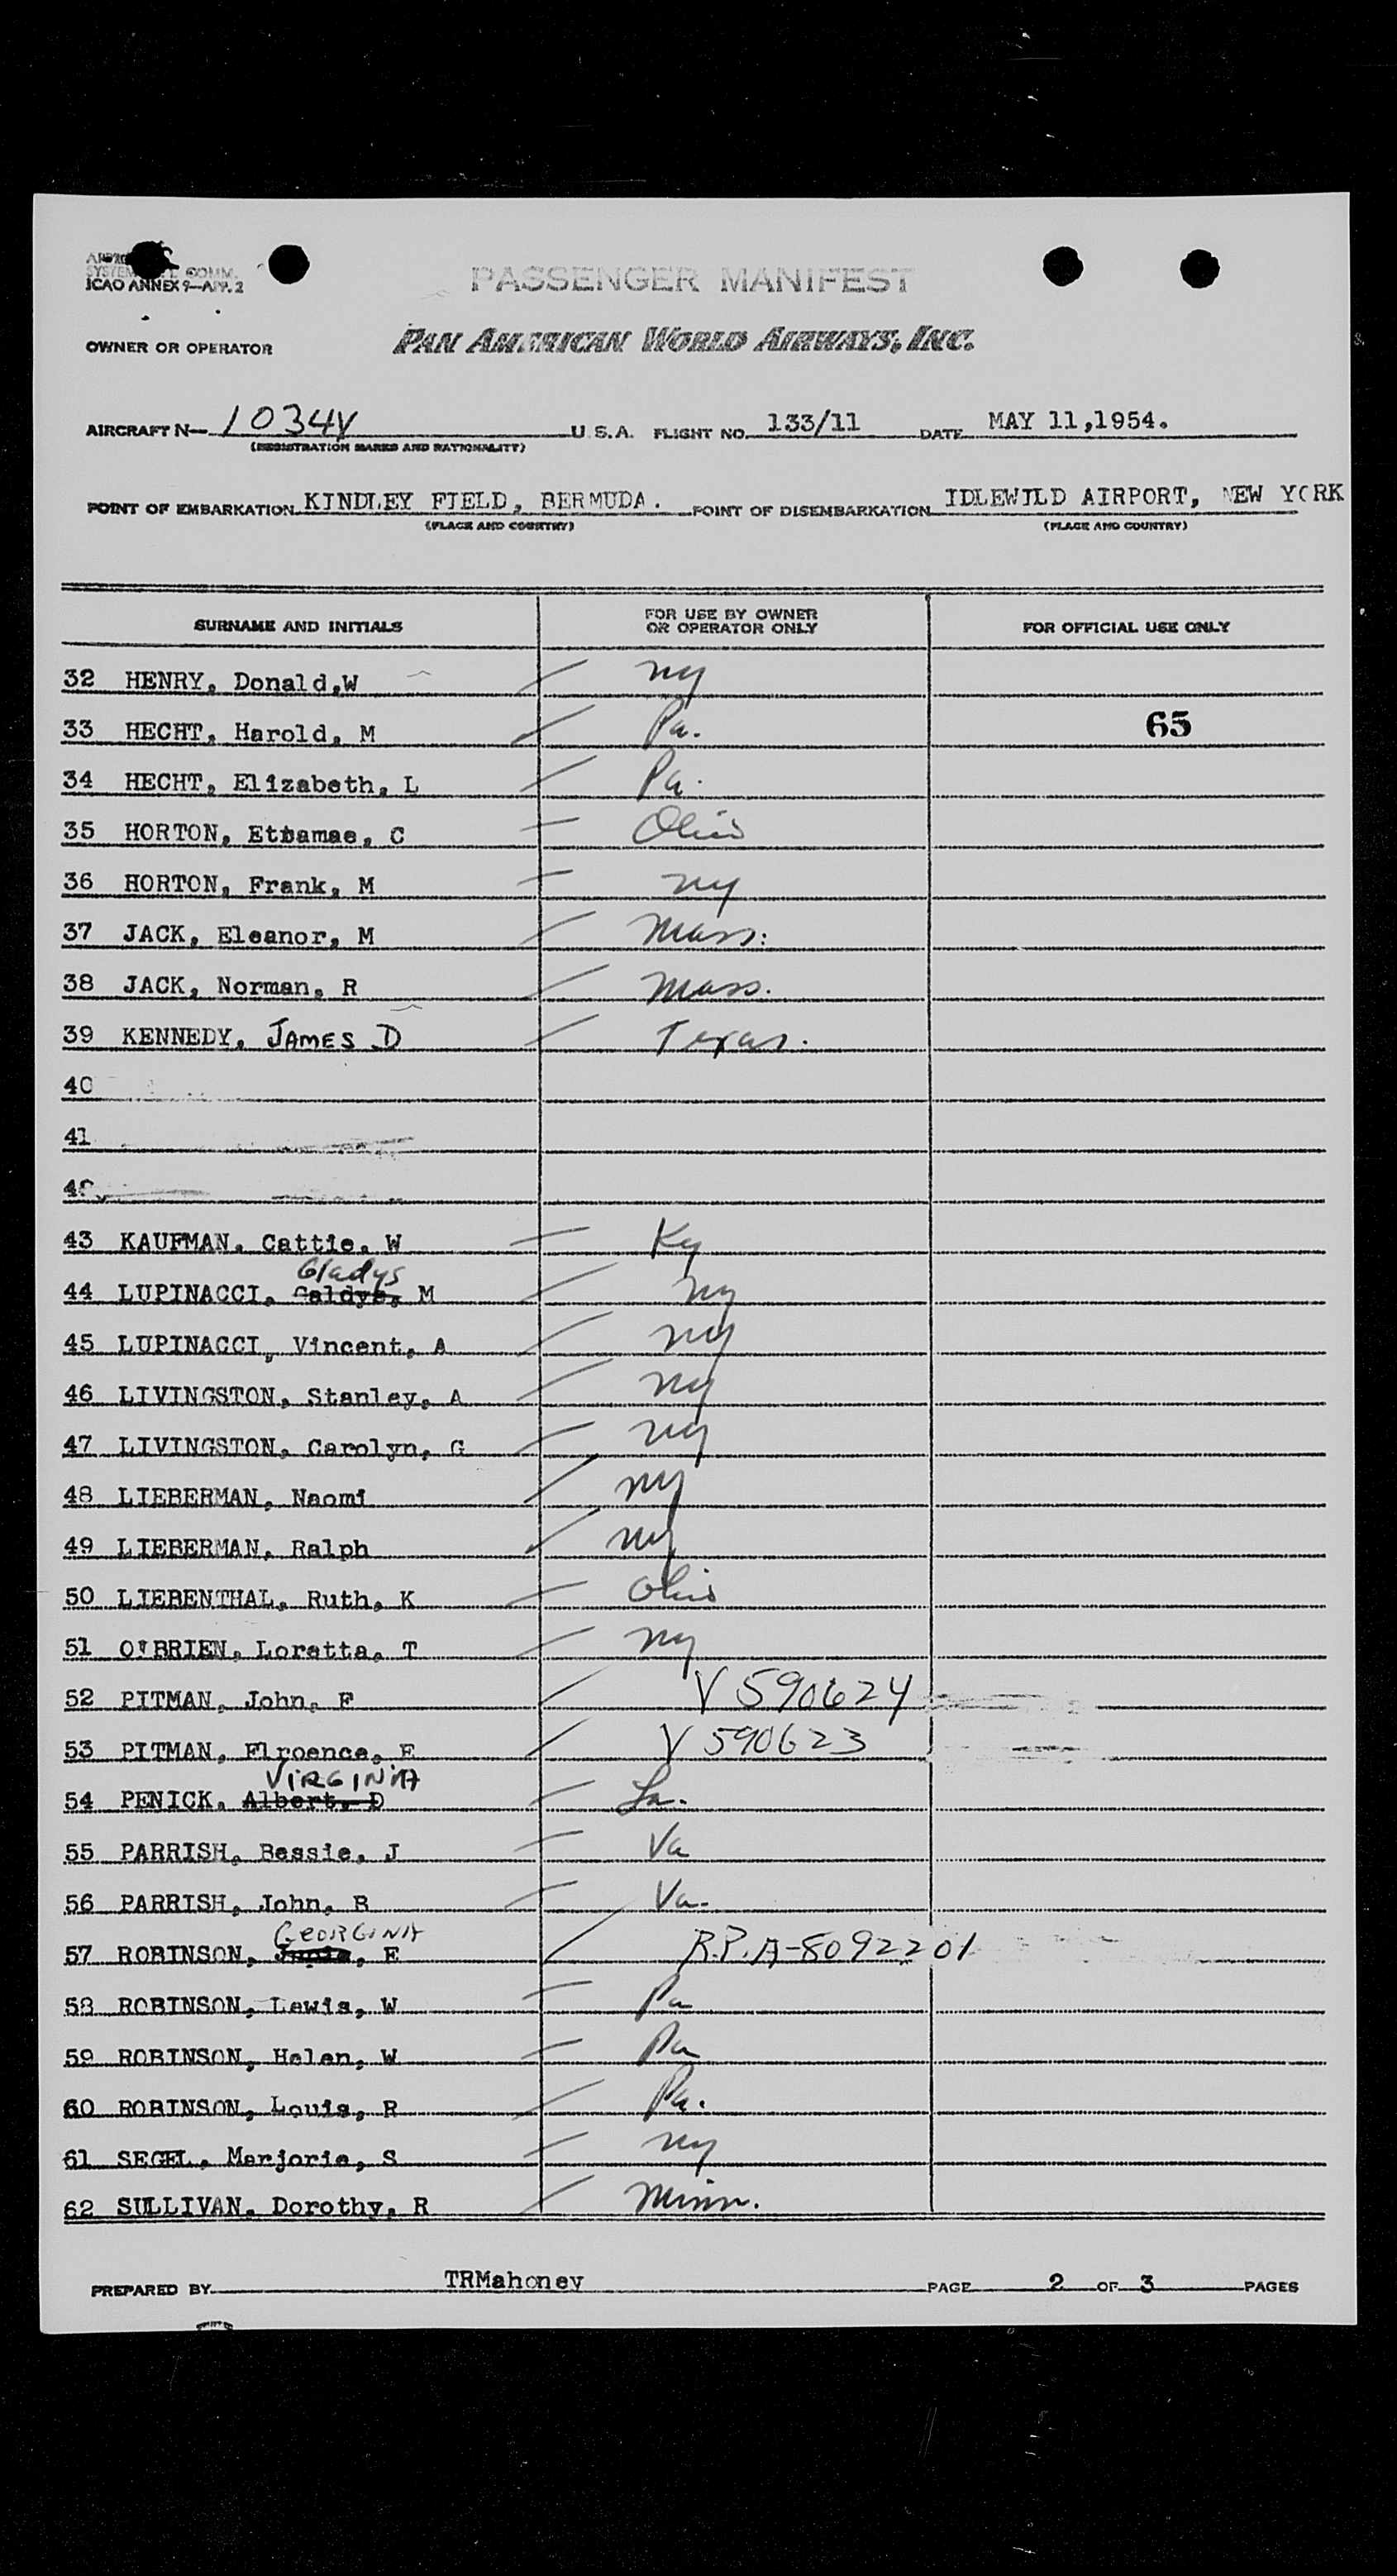 ICAO ANNEX 9—APP. 2
PASSENGER MANIFEST
OWNER OR OPERATOR PAN AMERICAN WORLD AIRWAYS, INC.
AIRCRAFT N— 1034V U.S.A. FLIGHT NO. 133/11 DATE MAY 11,1954.
(REGISTRATION MARKS AND NATIONALITY)
POINT OF EMBARKATION KINDLEY FIELD, BERMUDA. POINT OF DISEMBARKATION IDLEWILD AIRPORT, NEW YORK
(PLACE AND COUNTRY) (PLACE AND COUNTRY)
SURNAME AND INITIALS FOR USE BY OWNER OR OPERATOR ONLY FOR OFFICIAL USE ONLY
32 HENRY, Donald,W ny
33 HECHT, Harold, M Pa. 65
34 HECHT, Elizabeth, L Pa.
35 HORTON, Ettamae, C Ohio
36 HORTON, Frank, M ny
37 JACK, Eleanor, M Mass.
38 JACK, Norman, R Mass.
39 KENNEDY, JAMES D Texas.
40
41
42
43 KAUFMAN, Cattie, W Ky
Gladys
44 LUPINACCI, Galdys, M ny
45 LUPINACCI, Vincent, A ny
46 LIVINGSTON, Stanley, A ny
47 LIVINGSTON, Carolyn, G ny
48 LIEBERMAN, Naomi ny
49 LIEBERMAN, Ralph ny
50 LIEBENTHAL, Ruth, K Ohio
51 O'BRIEN, Loretta, T ny
52 PITMAN, John, F V 590624
53 PITMAN, Flroence, E V 590623
VIRGINIA
54 PENICK, Albert, D La.
55 PARRISH, Bessie, J Va
56 PARRISH, John, B Va.
GEORGINA
57 ROBINSON, E R.P.A-8092201
58 ROBINSON, Lewis, W Pa
59 ROBINSON, Helen, W Pa
60 ROBINSON, Louis, R Pa.
61 SEGEL, Marjorie, S ny
62 SULLIVAN, Dorothy, R Minn.
PREPARED BY TRMahoney PAGE 2 OF 3 PAGES